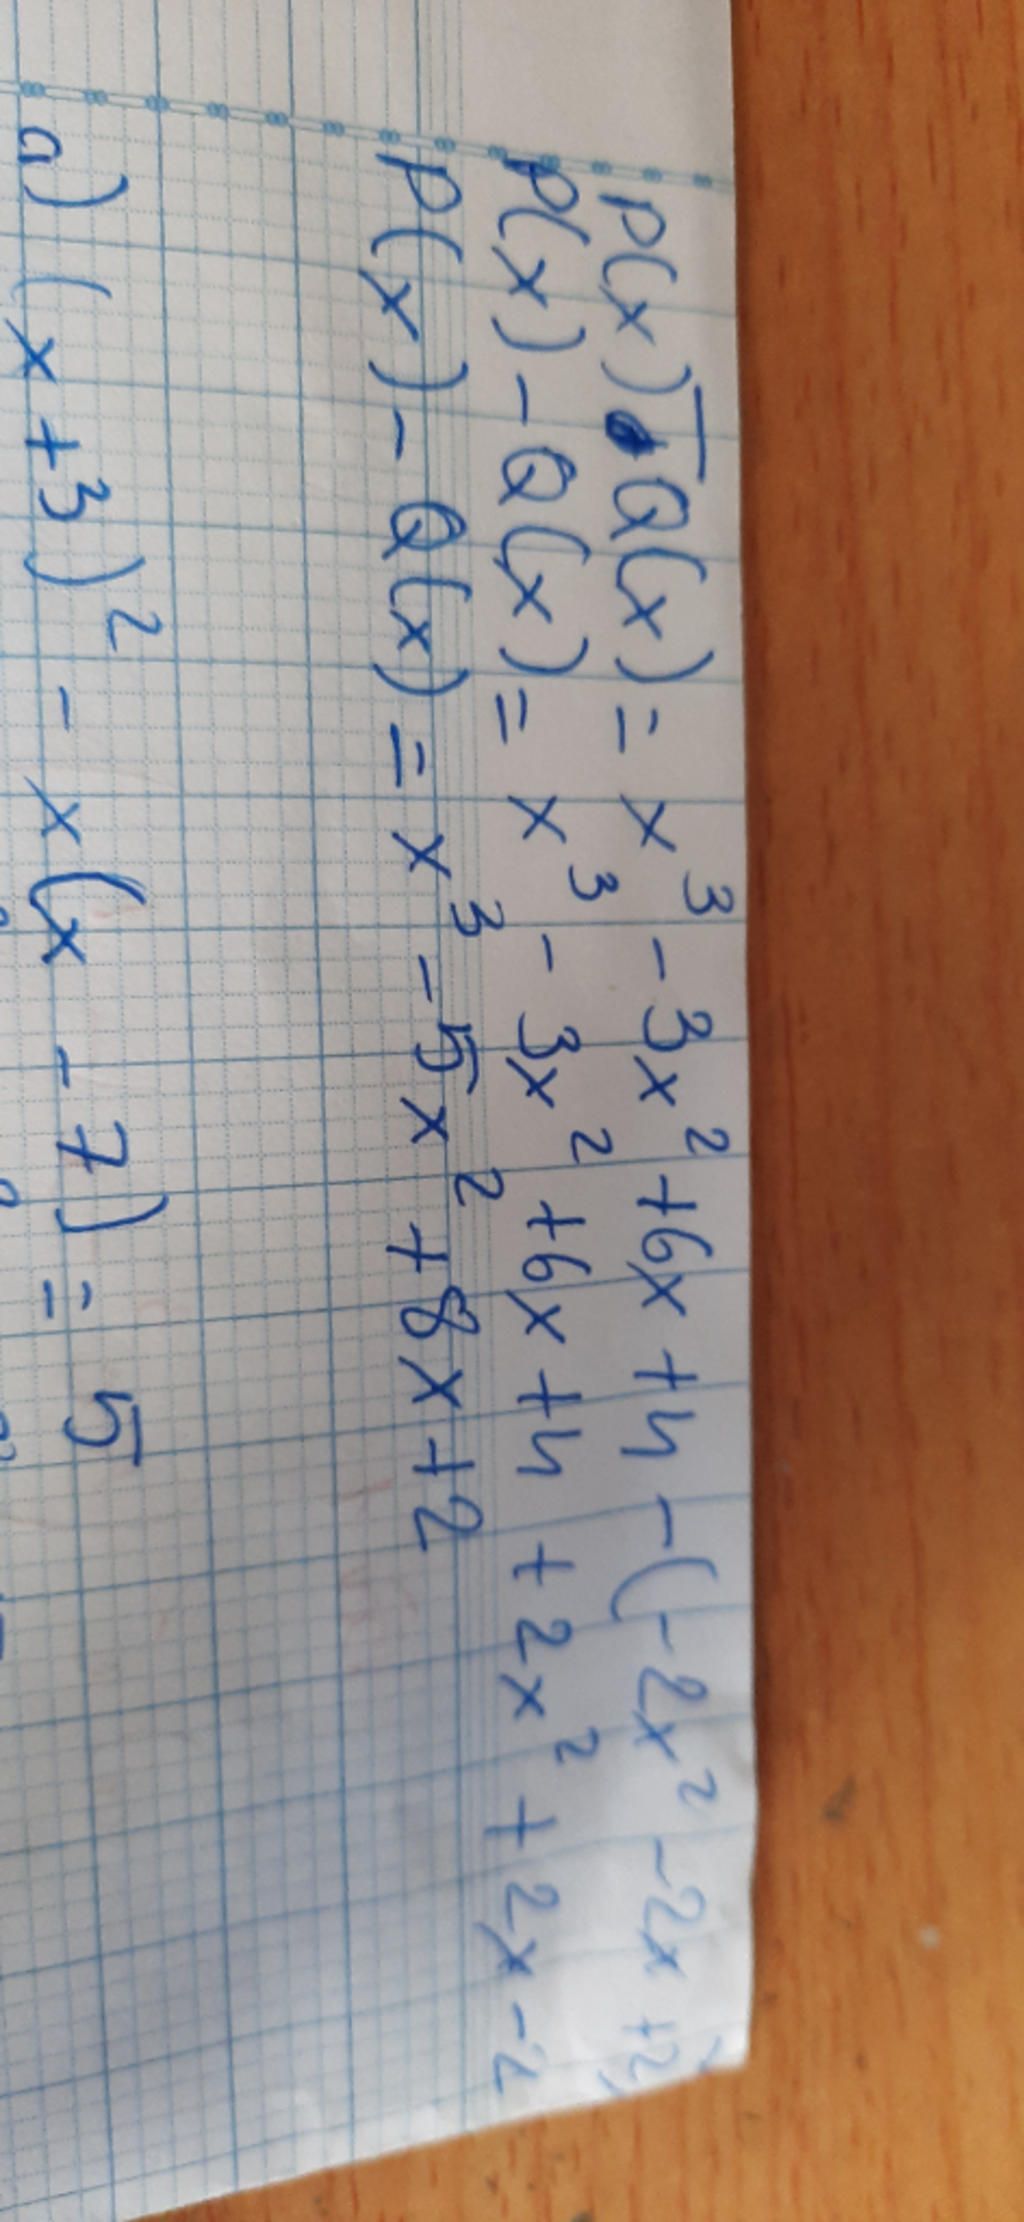 P(x) - Q(x) = x³ - 3x² + 6x + 4 - (-2x² - 2x + 2)
P(x) - Q(x) = x³ - 3x² + 6x + 4 + 2x² + 2x - 2
P(x) - Q(x) = x³ - 5x² + 8x + 2
a) (x + 3)² - x(x - 7) = 5